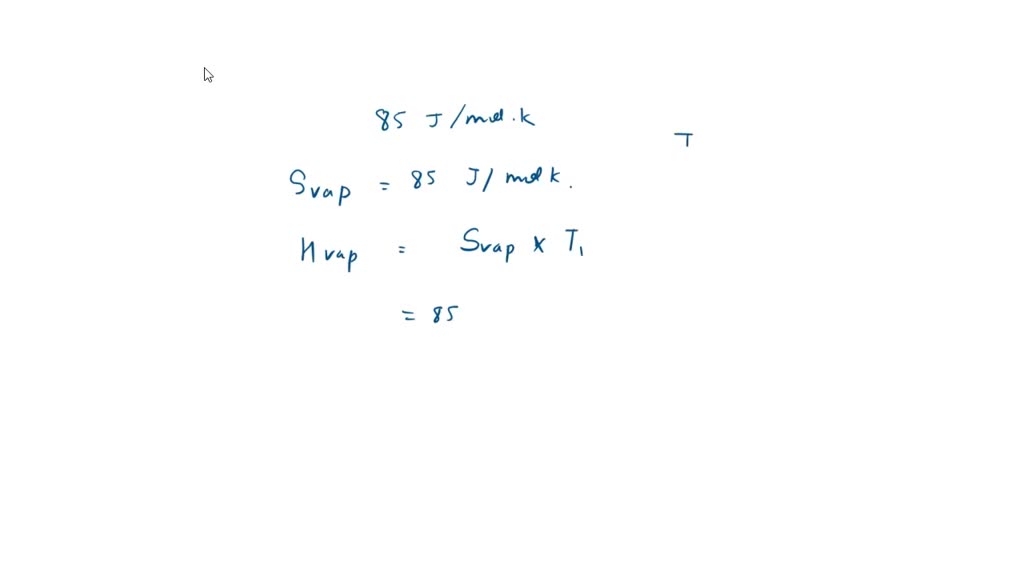 85 J/mol.k
T
Svap = 85 J/molk.
Hvap = Svap x T1
= 85